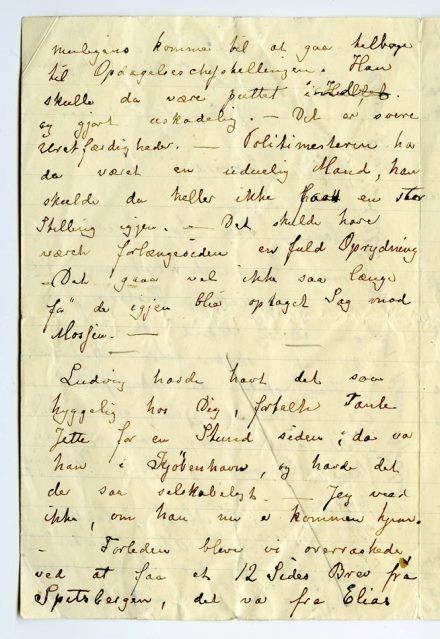 muligens komme til at gaa tilbage
til Opdagelseschefstillingen. Han
skulle da være puttet i
og gjort uskadelig. — Det er svære
Uretfærdigheder. — Politimesteren har
da været en uduelig Mand, han
skulde da heller ikke havt en stor
Stilling igjen. — Det skulde have
været forlængesiden en fuld Oprydning
— Det gaar vel ikke saa længe
før de igjen blir optaget Sag mod
Mossin. —
Ludvig havde havt det saa
hyggelig hos Dig, fortalte Tante
Jette for en Stund siden; da var
han i Kjøbenhavn, og havde det
der saa selskabeligt. — Jeg veed
ikke, om han nu er kommen hjem.
— Forleden bleve vi overraskede
ved at faa et 12 Sides Brev fra
Spitsbergen, det var fra Elias